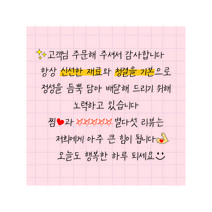 고객님 주문해 주셔서 감사합니다
항상 신선한 재료와 청결을 기본으로
정성을 듬뿍 담아 배달해 드리기 위해
노력하고 있습니다
찜❤과 ⭐⭐⭐⭐⭐ 별다섯 리뷰는
저희에게 아주 큰 힘이 됩니다
오늘도 행복한 하루 되세요